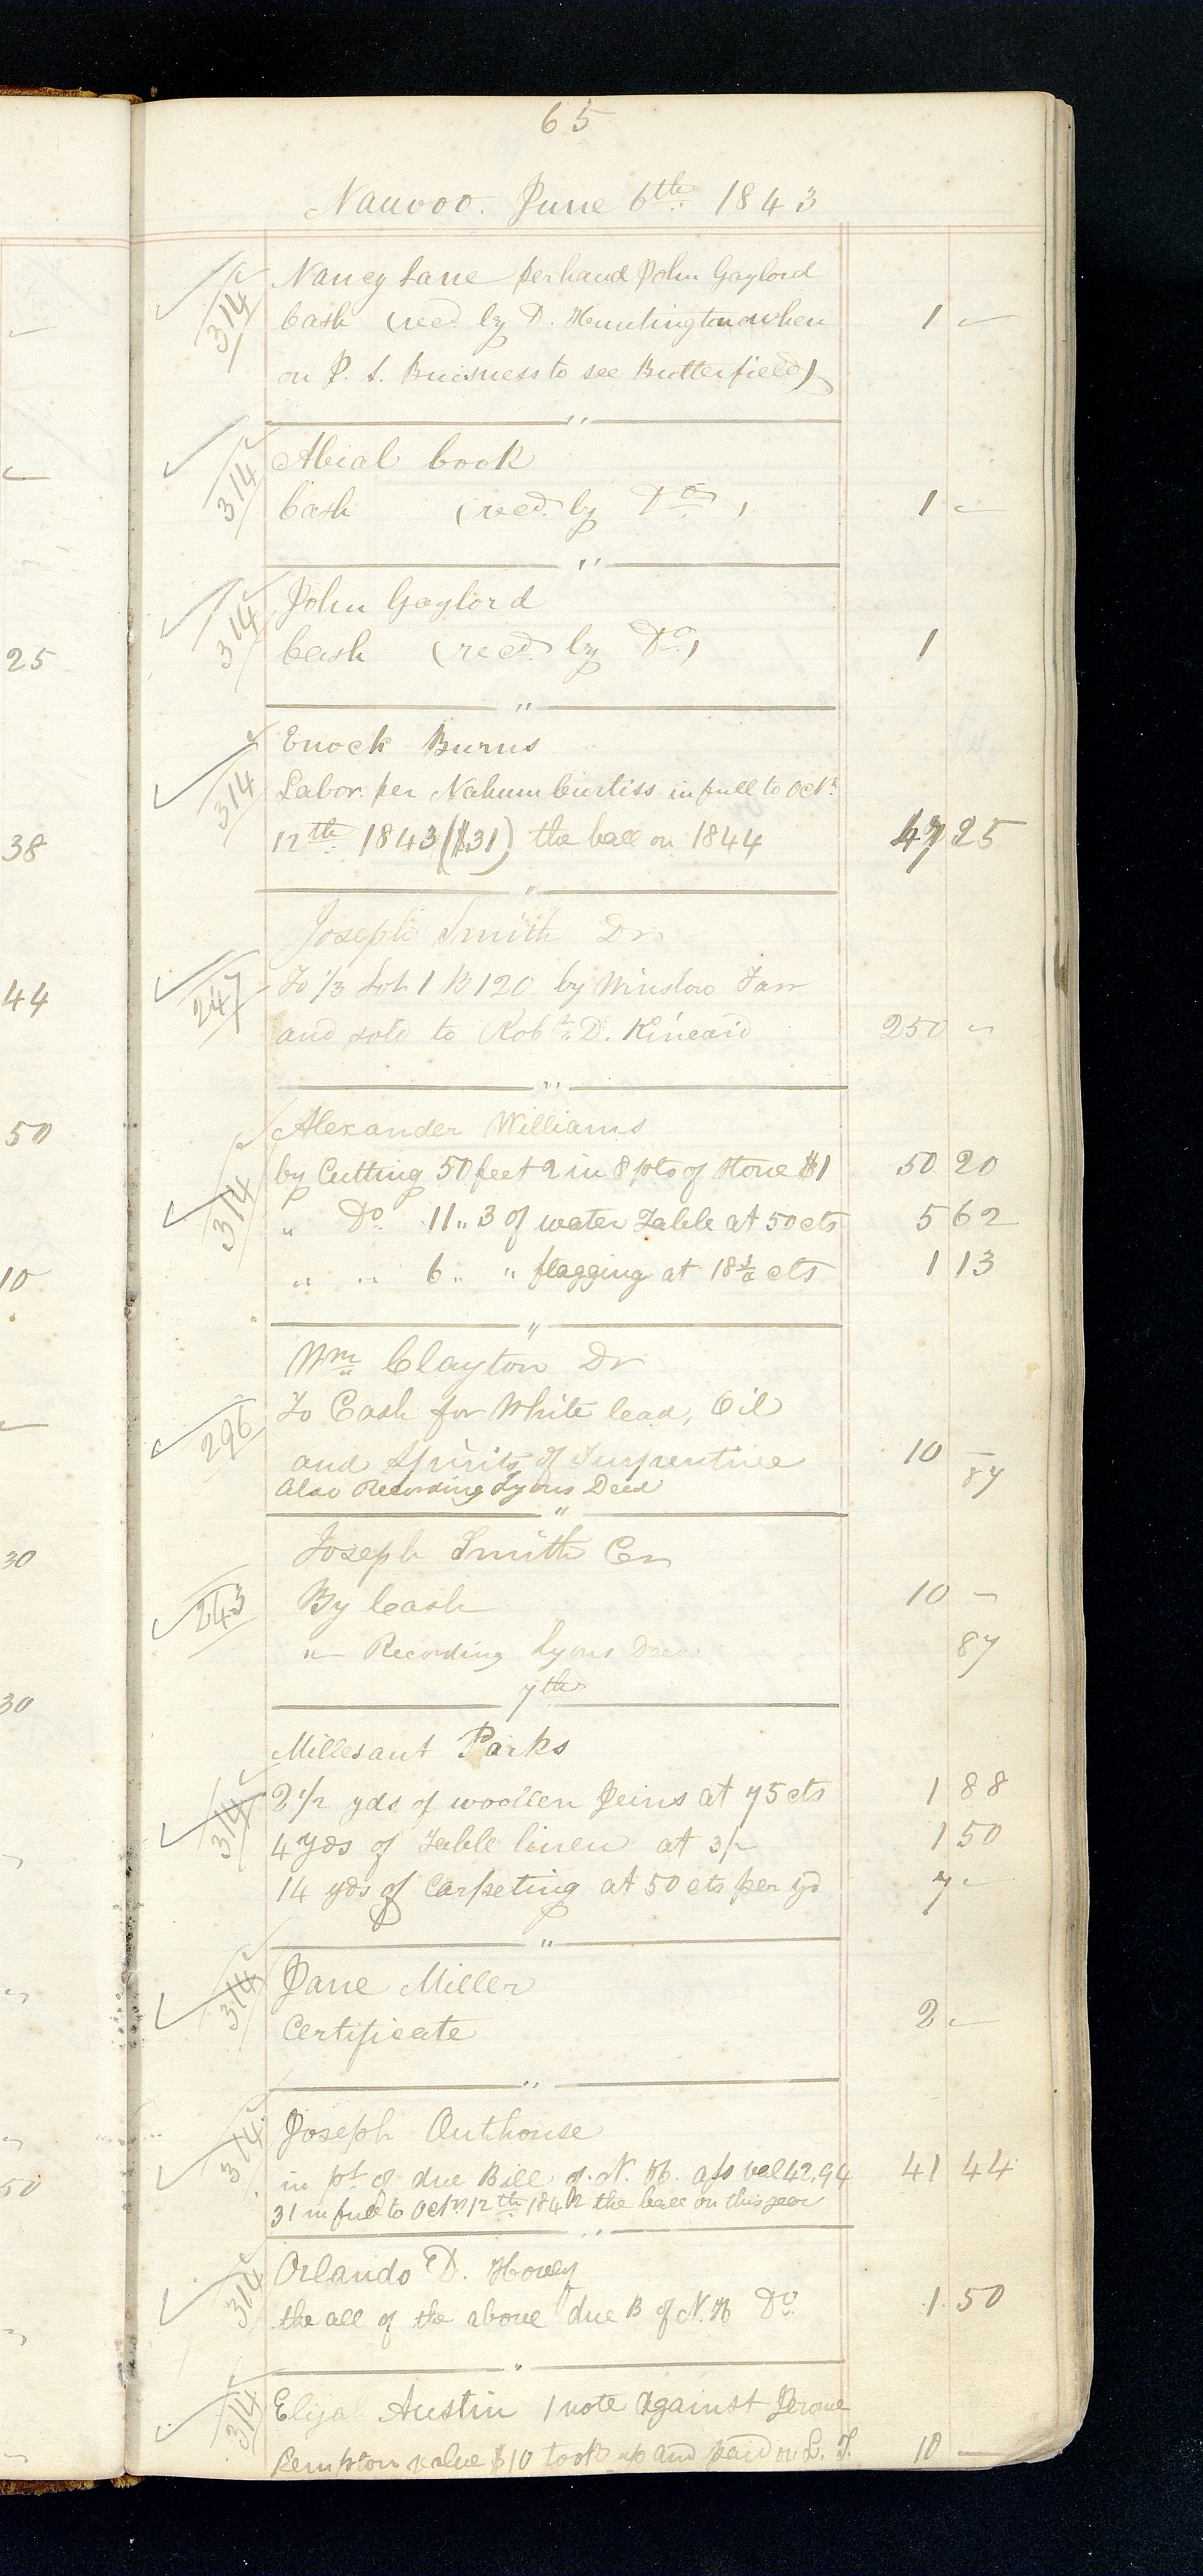 65
Nauvoo. June 6th. 1843
314 Nancy Lane per hand John Gaylord
Cash (recd. by D. Huntington when 1 -
on J. S. Buisness to see Butterfield)
"
314 Abial Cook
Cash (recd. by Do) 1 -
"
314 John Gaylord
Cash (recd. by Do) 1
"
314 Enock Burns
Labor per Nahum Curtiss in full to Octr.
12th. 1843 ($31) the ball on 1844 47 25
"
Joseph Smith Dr
247 To 1/3 Lot 1 B 120 by Winslow Farr
and sold to Robt. D. Kincaid 250 -
"
Alexander Williams
314 by Cutting 50 feet 2 in 8 pts of stone $1 50 20
" Do 11 " 3 of water Table at 50 cts 5 62
" " 6 " " flagging at 18 3/4 cts 1 13
"
Wm Clayton Dr
296 To Cash for White lead, Oil
and Spirits of Turpentine 10 -
Also Recording Lyons Deed 87
"
Joseph Smith Cr
243 By Cash 10 -
" Recording Lyons Deed 87
7th
Millesant Parks
314 2 1/2 yds of woollen Jeins at 75 cts 1 88
4 yds of Table linen at 3/- 1 50
14 yds of Carpeting at 50 cts per yd 7 -
"
314 Jane Miller
Certificate 2 -
"
314 Joseph Outhouse
in pt of due Bill of N. H. ass val 42.94 41 44
31 in full to Octr. 12th. 1842 the ball on this year
"
314 Orlando D. Hovey
the all of the above due B of N. H Do. 1. 50
"
314 Elijah Austin 1 note against Jerome
Kempton value $10 took up and paid on L. T. 10 -
25
38
44
50
10
30
30
50